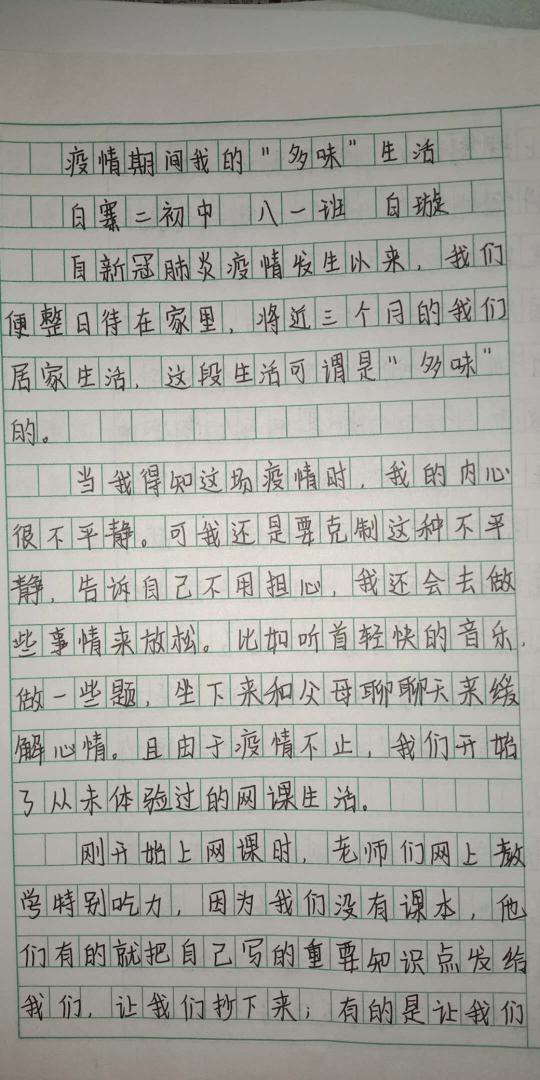 疫情期间我的“多味”生活
白寨二初中 八一班 白璇
自新冠肺炎疫情发生以来，我们
便整日待在家里，将近三个月的我们
居家生活，这段生活可谓是“多味”
的。
当我得知这场疫情时，我的内心
很不平静。可我还是要克制这种不平
静，告诉自己不用担心，我还会去做
些事情来放松。比如听首轻快的音乐，
做一些题，坐下来和父母聊聊天来缓
解心情。且由于疫情不止，我们开始
了从未体验过的网课生活。
刚开始上网课时，老师们网上教
学特别吃力，因为我们没有课本，他
们有的就把自己写的重要知识点发给
我们，让我们抄下来；有的是让我们